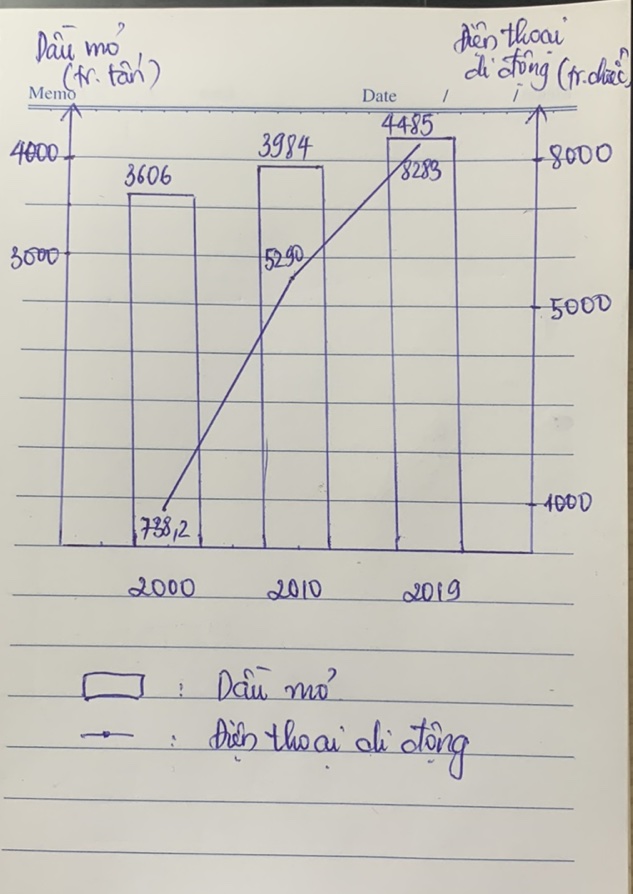 Dầu mỏ
(tr. tấn)
Điện thoại
di động (tr.chiếc)
Memo
Date / /
4485
4000
3984
8000
3606
8283
3000
5290
5000
1000
738,2
2000 2010 2019
: Dầu mỏ
: Điện thoại di động